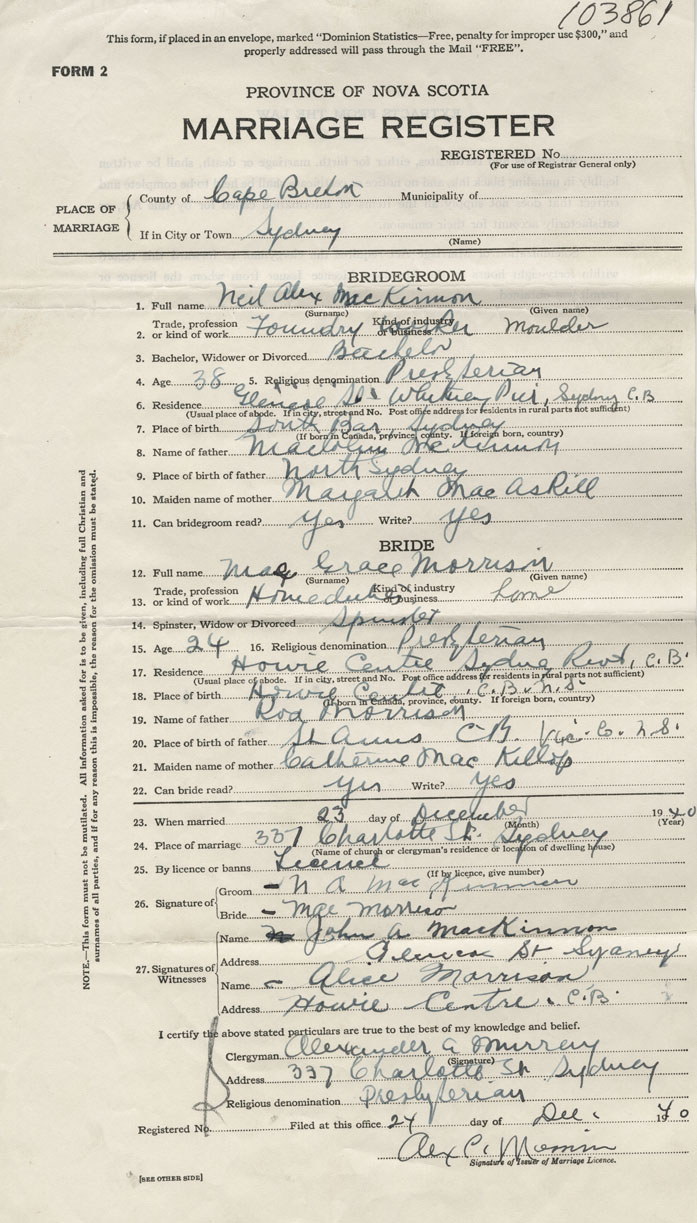 103861
This form, if placed in an envelope, marked “Dominion Statistics—Free, penalty for improper use $300,” and
properly addressed will pass through the Mail “FREE”.
FORM 2
PROVINCE OF NOVA SCOTIA
MARRIAGE REGISTER
REGISTERED No.
(For use of Registrar General only)
PLACE OF MARRIAGE
County of Cape Breton Municipality of
If in City or Town Sydney
(Name)
BRIDEGROOM
1. Full name Neil Alex MacKinnon
(Surname) (Given name)
2. Trade, profession or kind of work Foundry Kind of industry or business Moulder
3. Bachelor, Widower or Divorced Bachelor
4. Age 38 5. Religious denomination Presbyterian
6. Residence Glencoe St Whitney Pier, Sydney C.B
(Usual place of abode. If in city, street and No. Post office address for residents in rural parts not sufficient)
7. Place of birth South Bar Sydney
(If born in Canada, province, county. If foreign born, country)
8. Name of father McKinnon
9. Place of birth of father North Sydney
10. Maiden name of mother Margaret MacAskill
11. Can bridegroom read? yes Write? yes
BRIDE
12. Full name Mae Grace Morrison
(Surname) (Given name)
13. Trade, profession or kind of work Homeduties Kind of industry or business home
14. Spinster, Widow or Divorced Spinster
15. Age 24 16. Religious denomination Presbyterian
17. Residence Howie Centre Sydney C.B.
(Usual place of abode. If in city, street and No. Post office address for residents in rural parts not sufficient)
18. Place of birth Howie Centre, C.B. N.S.
(If born in Canada, province, county. If foreign born, country)
19. Name of father Rod Morrison
20. Place of birth of father St Anns C.B. Vic. Co. N.S.
21. Maiden name of mother Catherine MacKillop
22. Can bride read? yes Write? yes
23. When married 23 day of December 1940
(Month) (Year)
24. Place of marriage 337 Charlotte St. Sydney
(Name of church or clergyman's residence or location of dwelling house)
25. By licence or banns Licence
(If by licence, give number)
26. Signature of
Groom N A MacKinnon
Bride Mae Morrison
27. Signatures of Witnesses
Name John A MacKinnon
Address Glencoe St Sydney
Name Alice Morrison
Address Howie Centre. C.B.
I certify the above stated particulars are true to the best of my knowledge and belief.
Clergyman Alexander A Murray
(Signature)
Address 337 Charlotte St Sydney
Religious denomination Presbyterian
Registered No. Filed at this office 24 day of Dec. 1940
Alex C.
Signature of Issuer of Marriage Licence.
[SEE OTHER SIDE]
NOTE.—This form must not be mutilated. All information asked for is to be given, including full Christian and
surnames of all parties, and if for any reason this is impossible, the reason for the omission must be stated.